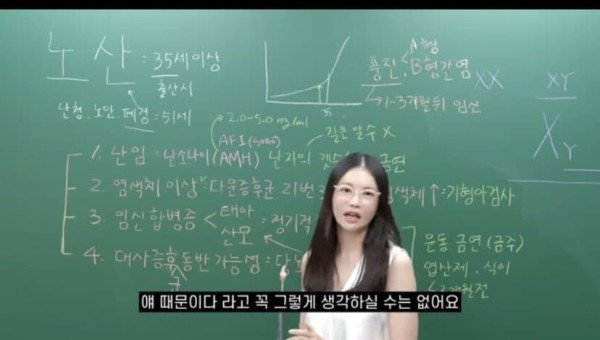 노산 : 35세이상
출산시
난청, 노안, 폐경 : 51세
35
풍진, A형
B형간염
1~3개월뒤 임신
XX
XY
XY
2.0~5.0 ng/ml
질문 알수 X
1. 난임 : 난소나이(AMH) 난자의 금연
2. 염색체 이상 : 다운증후군 21번 염색체 ↑ : 기형아검사
3. 임신 합병증 < 태아 : 정기적
산모
4. 대사증후동반가능성 : 당뇨
군
운동 금연 (금주)
엽산제, 식이
개월전
얘 때문이다 라고 꼭 그렇게 생각하실 수는 없어요